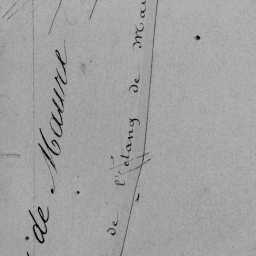 de Maure
de l'étang de Mau